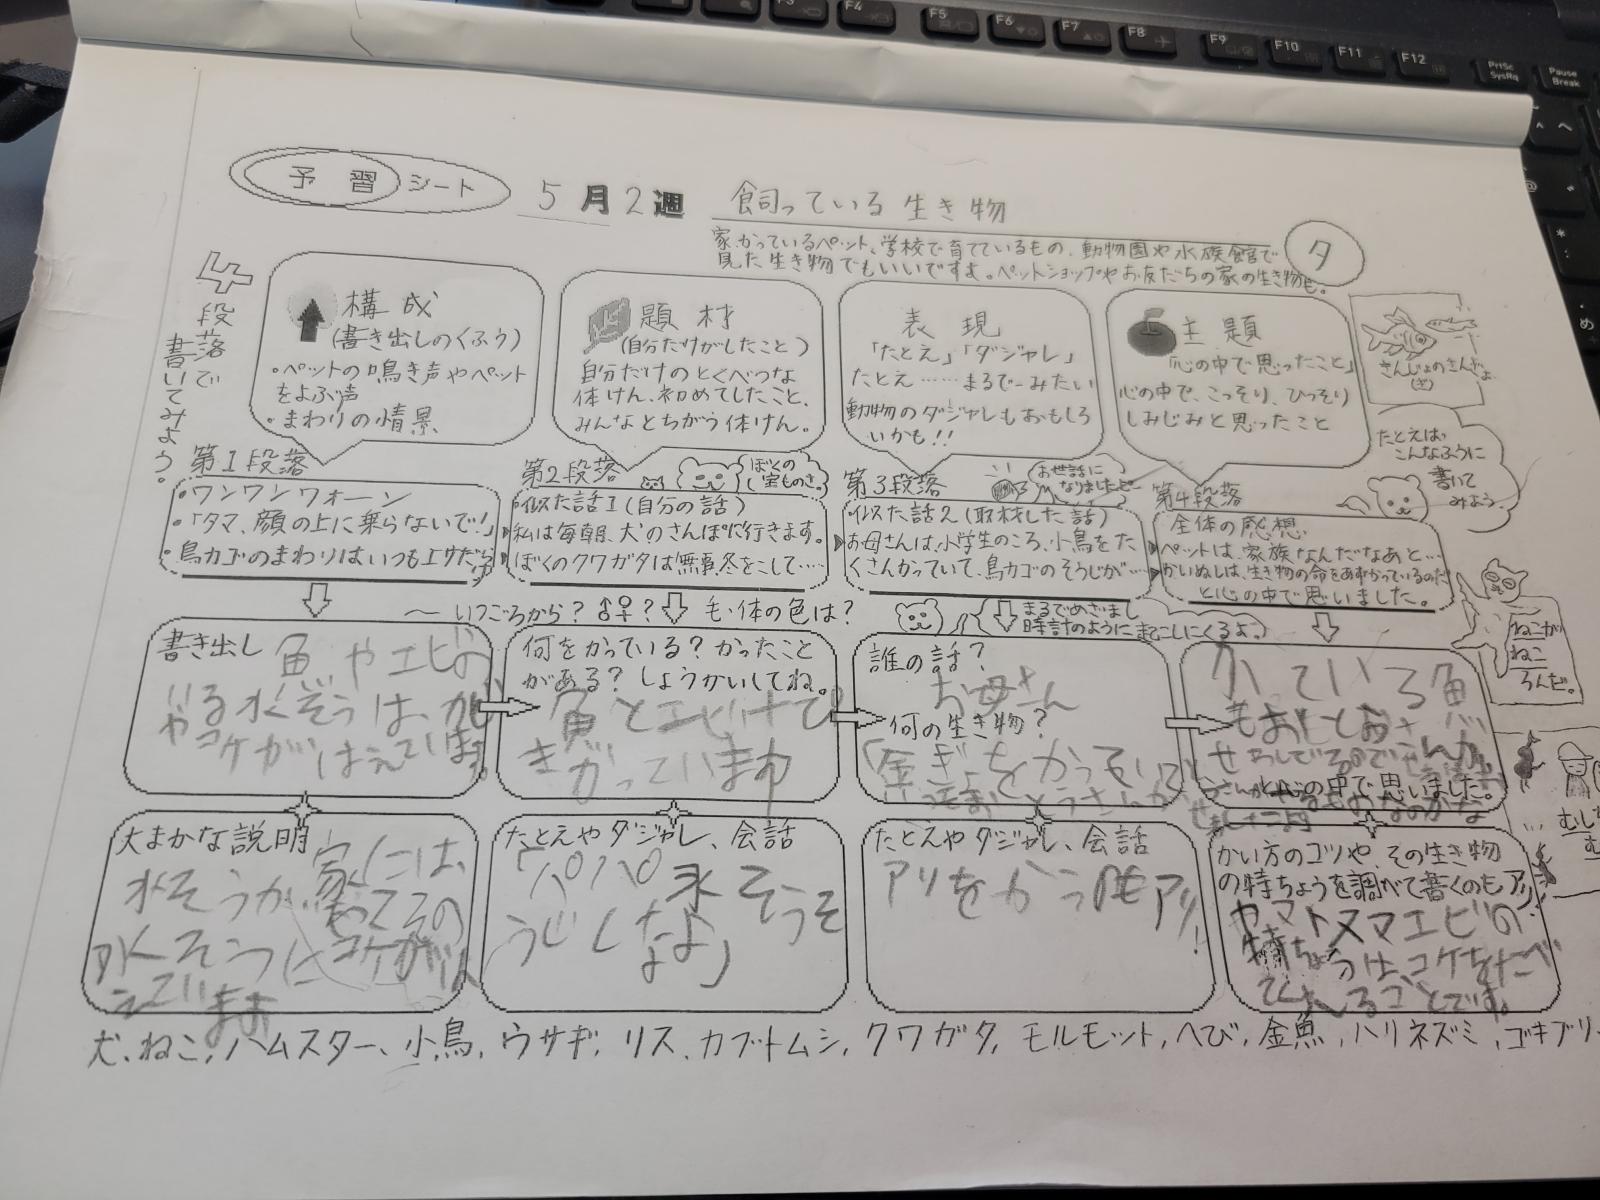 予習シート 5月2週 飼っている生き物
家でかっているペット、学校で育てているもの、動物園や水族館で
見た生き物でもいいですよ。ペットショップやお友だちの家の生き物も。
タ
4段落で
書いてみよう。
構成
(書き出しのくふう)
・ペットの鳴き声やペット
をよぶ声
・まわりの情景
題材
(自分だけがしたこと)
自分だけのとくべつな
体けん、初めてしたこと、
みんなとちがう体けん。
表現
「たとえ」「ダジャレ」
たとえ……まるで〜みたい
動物のダジャレもおもしろ
いかも!!
主題
「心の中で思ったこと」
心の中で、こっそり、ひっそり
しみじみと思ったこと
さんじょのさんぎょ
たとえば、
こんなふうに
書いて
みよう。
第1段落
・ワンワンウォーン
・「タマ、顔の上に乗らないで!」
・鳥カゴのまわりはいつもエサだら
第2段落
ぼくの
宝ものさ。
・似た話1(自分の話)
私は毎朝、犬のさんぽに行きます。
ぼくのクワガタは無事、冬をこして……
第3段落
お世話に
なりましたピー
・似た話2(取材した話)
お母さんは、小学生のころ、小鳥をた
くさんかっていて、鳥カゴのそうじが……
第4段落
全体の感想
ペットは、家族なんだなあと…
かいぬしは、生き物の命をあずかっているのだ
と心の中で思いました。
〜いつごろから?♂♀? 毛・体の色は?
まるでめざまし
時計のように起こしにくるよ。
ねこが
ねこ
ろんだ。
書き出し
魚やエビの
いる水ぞうは、
コケがはえています。
何をかっている?かったこと
がある?しょうかいしてね。
魚とエビ
誰の話?
お母さん
何の生き物?
かっている魚
と心の中で思いました。
大まかな説明
家には、
水そうが
コケがは
えています
たとえやダジャレ、会話
「パパ水そうそ
うじしなよ」
たとえやダジャレ、会話
アリをかうのもアリ!
かい方のコツや、その生き物
の特ちょうを調べて書くのもアリ!
ヤマトヌマエビの
特ちょうは、コケをたべ
てくれることです。
犬、ねこ、ハムスター、小鳥、ウサギ、リス、カブトムシ、クワガタ、モルモット、へび、金魚、ハリネズミ、ゴキブリ